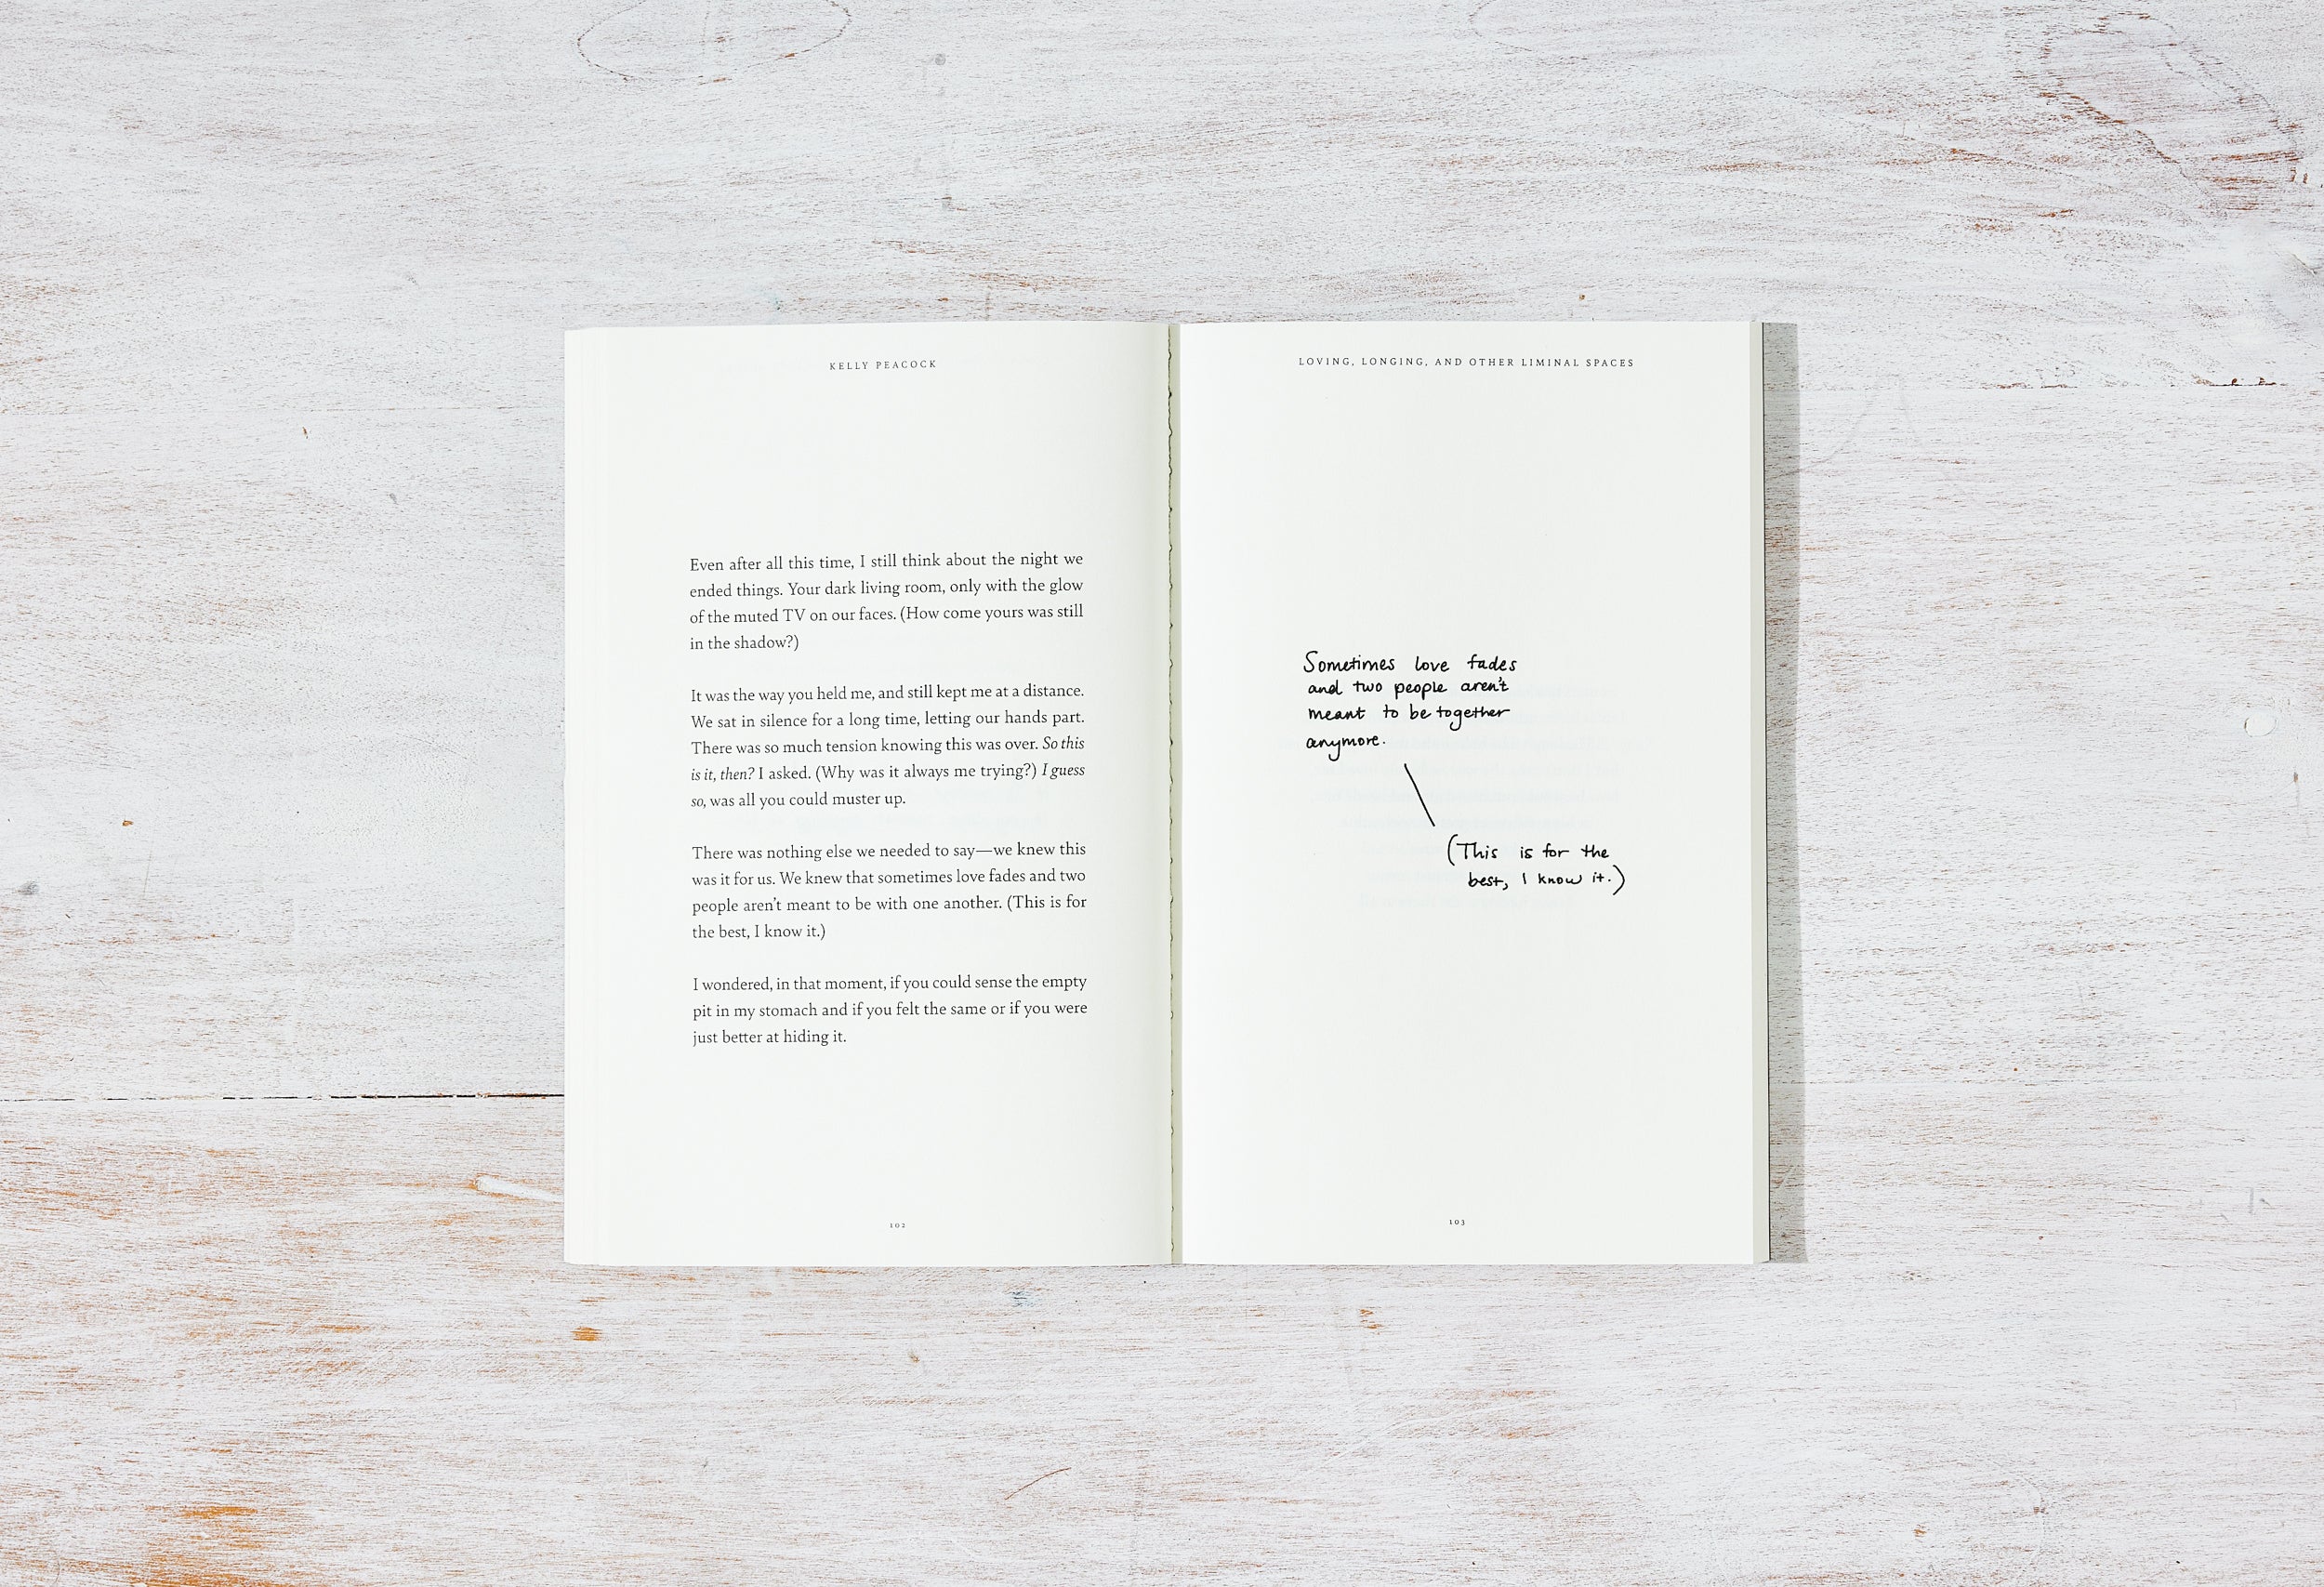 KELLY PEACOCK
Even after all this time, I still think about the night we
ended things. Your dark living room, only with the glow
of the muted TV on our faces. (How come yours was still
in the shadow?)
It was the way you held me, and still kept me at a distance.
We sat in silence for a long time, letting our hands part.
There was so much tension knowing this was over. So this
is it, then? I asked. (Why was it always me trying?) I guess
so, was all you could muster up.
There was nothing else we needed to say—we knew this
was it for us. We knew that sometimes love fades and two
people aren't meant to be with one another. (This is for
the best, I know it.)
I wondered, in that moment, if you could sense the empty
pit in my stomach and if you felt the same or if you were
just better at hiding it.
102
LOVING, LONGING, AND OTHER LIMINAL SPACES
Sometimes love fades
and two people aren't
meant to be together
anymore.
(This is for the
best, I know it.)
103